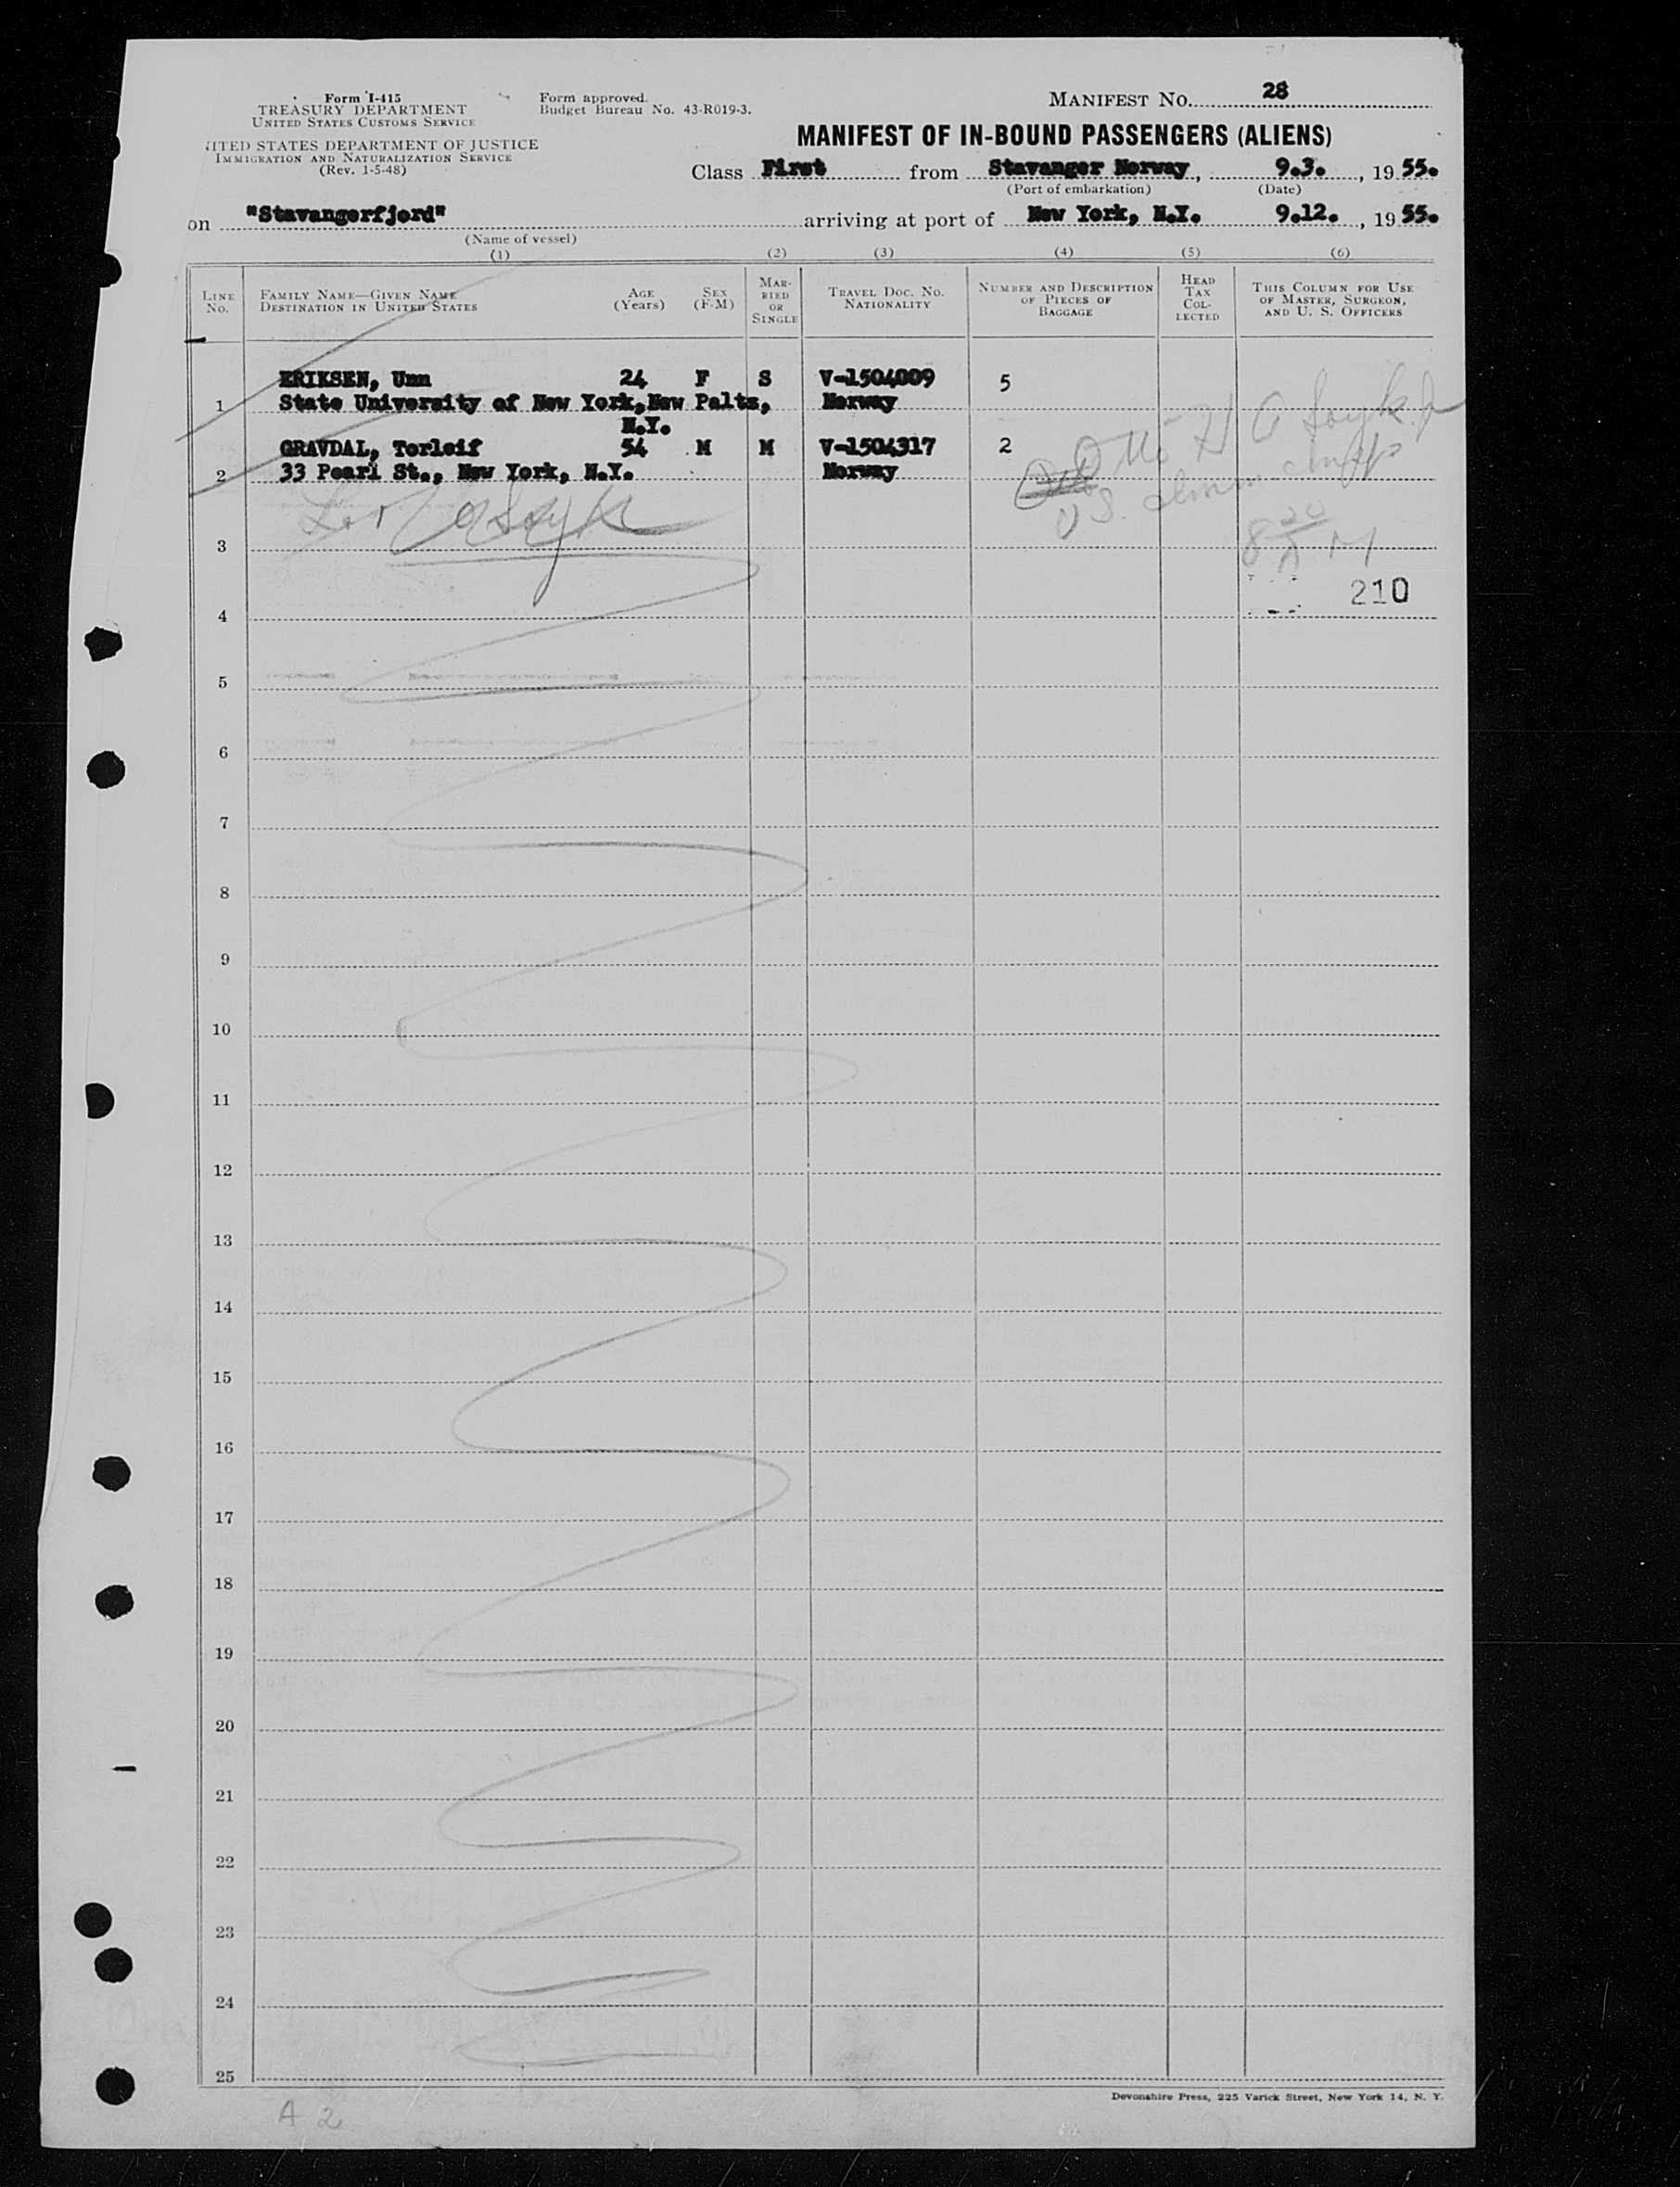 Form I-415
TREASURY DEPARTMENT
UNITED STATES CUSTOMS SERVICE
ITED STATES DEPARTMENT OF JUSTICE
IMMIGRATION AND NATURALIZATION SERVICE
(Rev. 1-5-48)
Form approved.
Budget Bureau No. 43-R019-3.
MANIFEST No. 28
MANIFEST OF IN-BOUND PASSENGERS (ALIENS)
Class First from Stavanger Norway, 9.3., 19 55.
(Port of embarkation) (Date)
on "Stavangerfjord" arriving at port of New York, N.Y. 9.12., 19 55.
(Name of vessel)
(1) (2) (3) (4) (5) (6)
LINE No. FAMILY NAME—GIVEN NAME DESTINATION IN UNITED STATES AGE (Years) SEX (F-M) MARRIED OR SINGLE TRAVEL DOC. NO. NATIONALITY NUMBER AND DESCRIPTION OF PIECES OF BAGGAGE HEAD TAX COLLECTED THIS COLUMN FOR USE OF MASTER, SURGEON, AND U. S. OFFICERS
ERIKSEN, Unn 24 F S V-1504009 5
1 State University of New York, New Paltz, Norway
N.Y.
GRAVDAL, Torleif 54 M M V-1504317 2
2 33 Pearl St., New York, N.Y. Norway
3
210
4
5
6
7
8
9
10
11
12
13
14
15
16
17
18
19
20
21
22
23
24
25
Devonshire Press, 225 Varick Street, New York 14, N. Y.
A 2